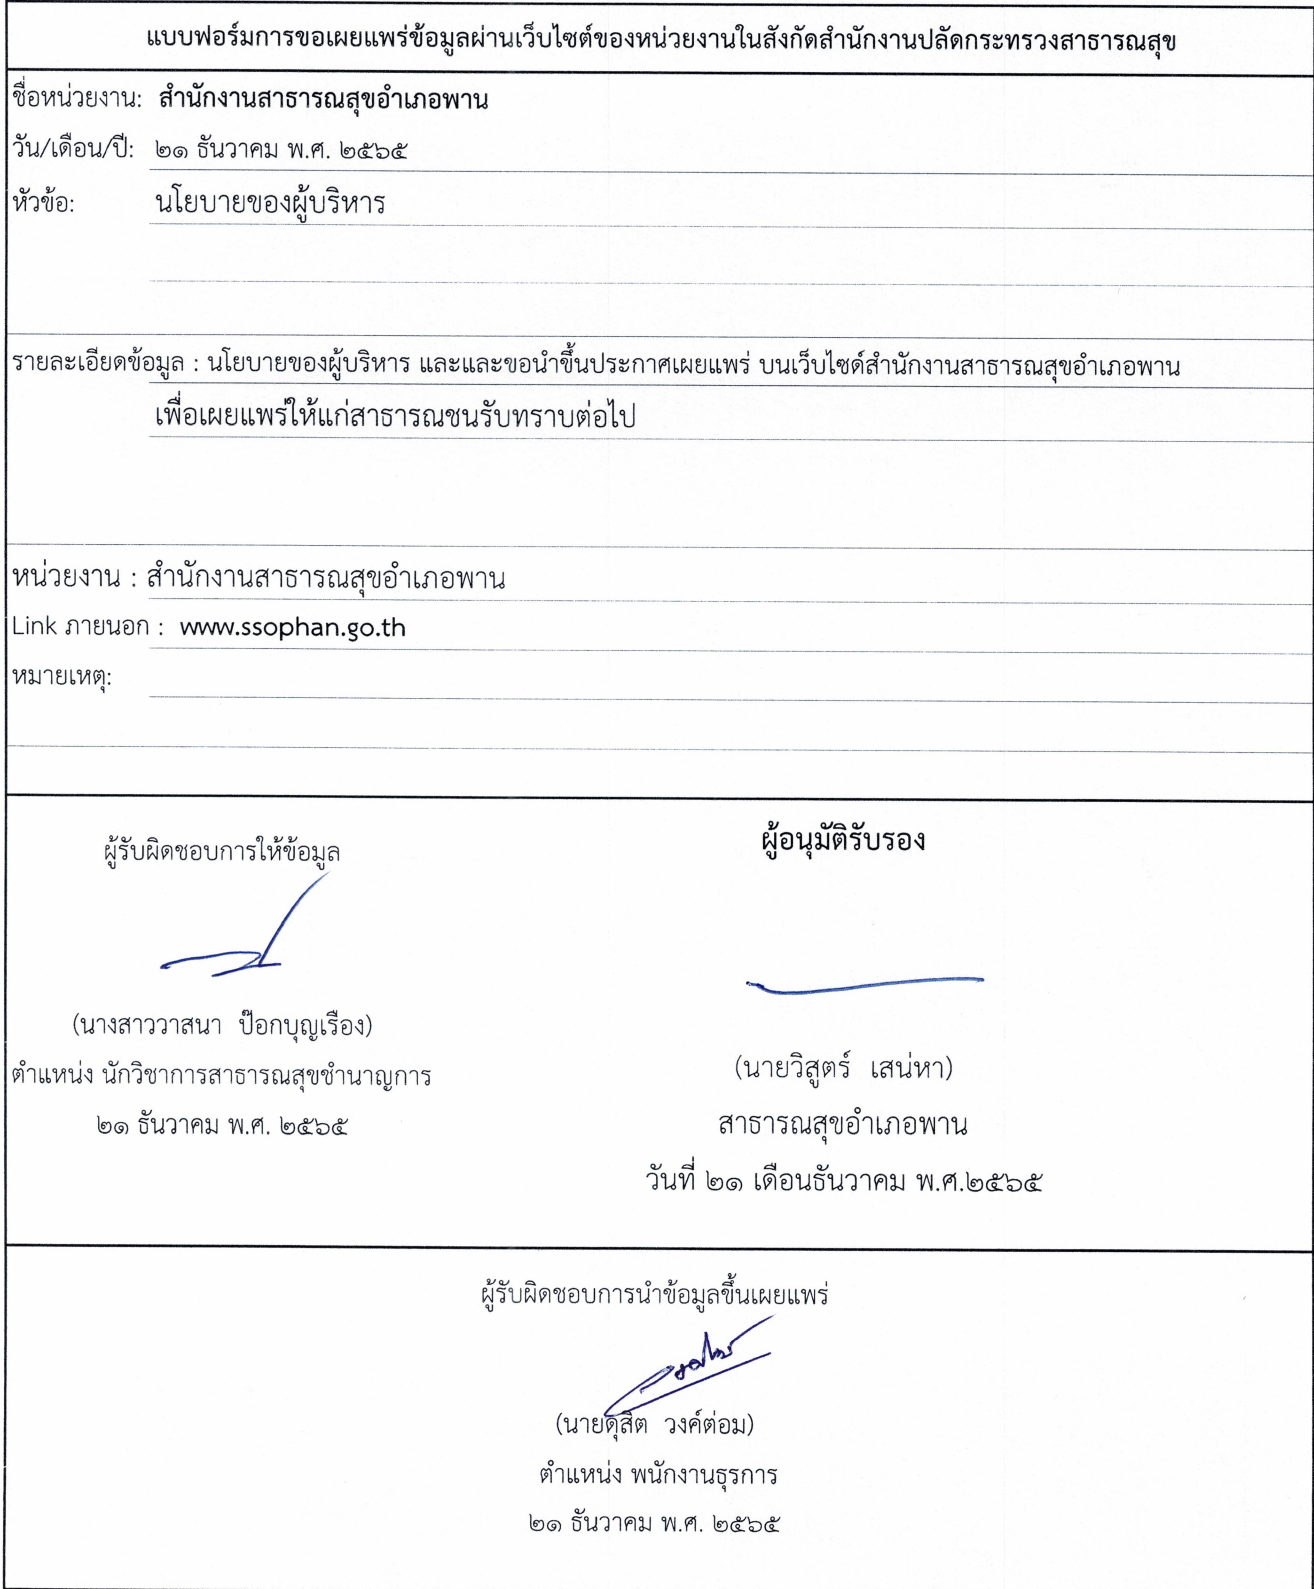 แบบฟอร์มการขอเผยแพร่ข้อมูลผ่านเว็บไซต์ของหน่วยงานในสังกัดสำนักงานปลัดกระทรวงสาธารณสุข
ชื่อหน่วยงาน: สำนักงานสาธารณสุขอำเภอพาน
วัน/เดือน/ปี: ๒๑ ธันวาคม พ.ศ. ๒๕๖๕
หัวข้อ: นโยบายของผู้บริหาร
รายละเอียดข้อมูล : นโยบายของผู้บริหาร และและขอนำขึ้นประกาศเผยแพร่ บนเว็บไซด์สำนักงานสาธารณสุขอำเภอพาน
เพื่อเผยแพร่ให้แก่สาธารณชนรับทราบต่อไป
หน่วยงาน : สำนักงานสาธารณสุขอำเภอพาน
Link ภายนอก : www.ssophan.go.th
หมายเหตุ:
ผู้รับผิดชอบการให้ข้อมูล
(นางสาววาสนา ป๊อกบุญเรือง)
ตำแหน่ง นักวิชาการสาธารณสุขชำนาญการ
๒๑ ธันวาคม พ.ศ. ๒๕๖๕
ผู้อนุมัติรับรอง
(นายวิสูตร์ เสน่หา)
สาธารณสุขอำเภอพาน
วันที่ ๒๑ เดือนธันวาคม พ.ศ.๒๕๖๕
ผู้รับผิดชอบการนำข้อมูลขึ้นเผยแพร่
(นายดุสิต วงค์ต่อม)
ตำแหน่ง พนักงานธุรการ
๒๑ ธันวาคม พ.ศ. ๒๕๖๕